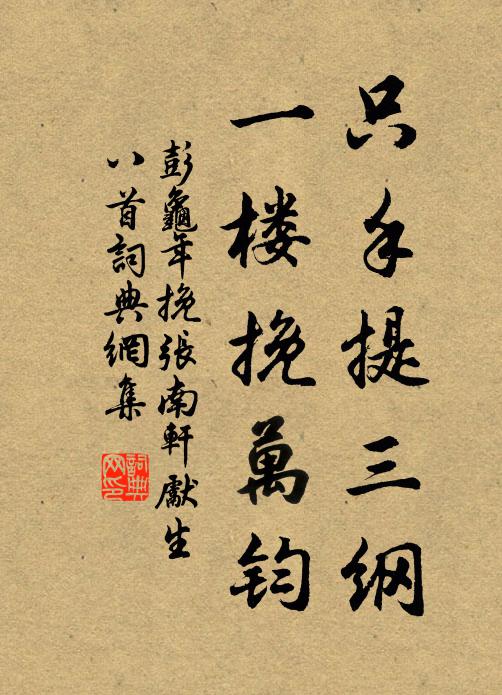 只手提三纲
一楼挽萬钧
彭龜年挽張南軒獻生
八首詞典網集
詞典网印